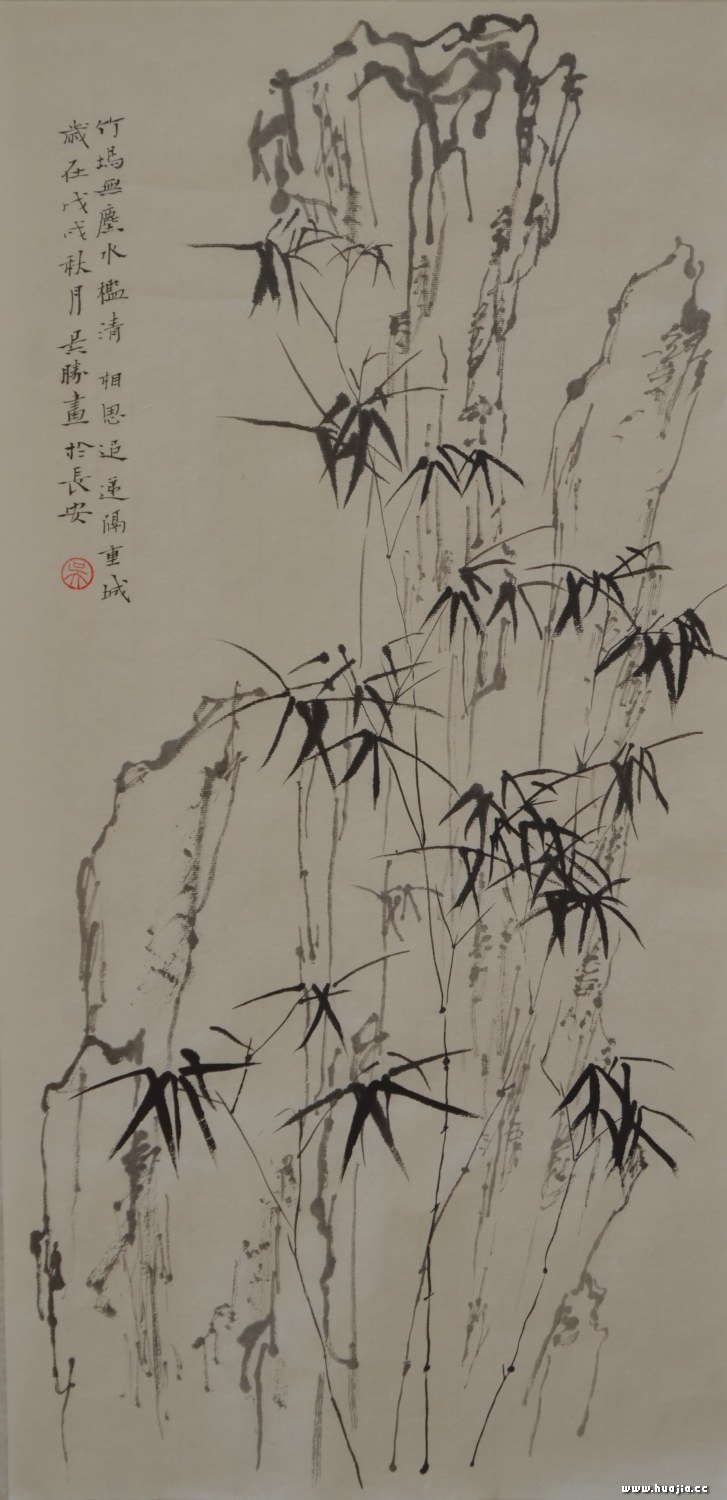 竹塢無塵水檻清 相思迢遞隔重城
歲在戊戌秋月吳勝畫於長安
吳
www.huajia.cc